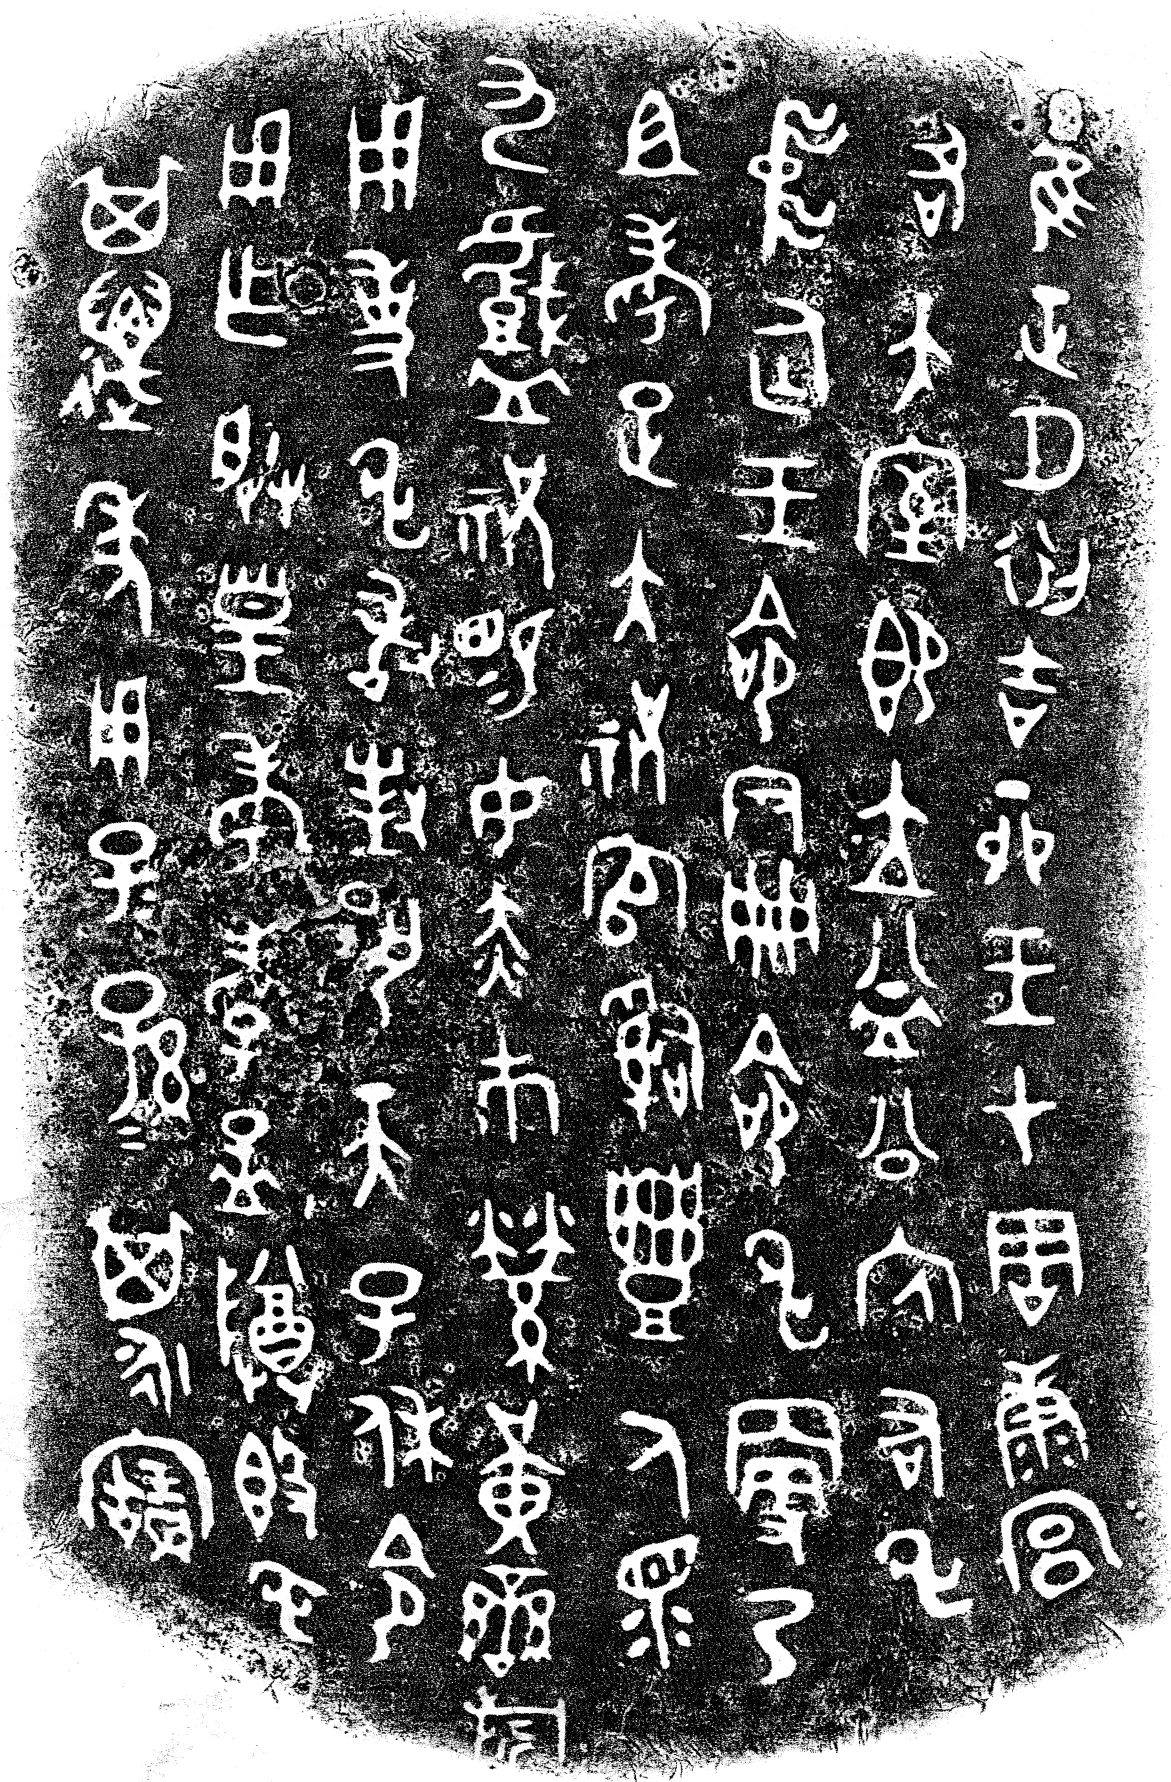 隹正月初吉丁卯王才周康宮
各大室即立益公內右申
中廷王命尹冊命申更乃
且考疋大祝官𤔲豐人眔
九戲祝易女赤巿縈黃䜌旂
用事申敢對揚天子休令
用乍朕皇考孝孟尊簋申
其邁年用子=孫=其永寶